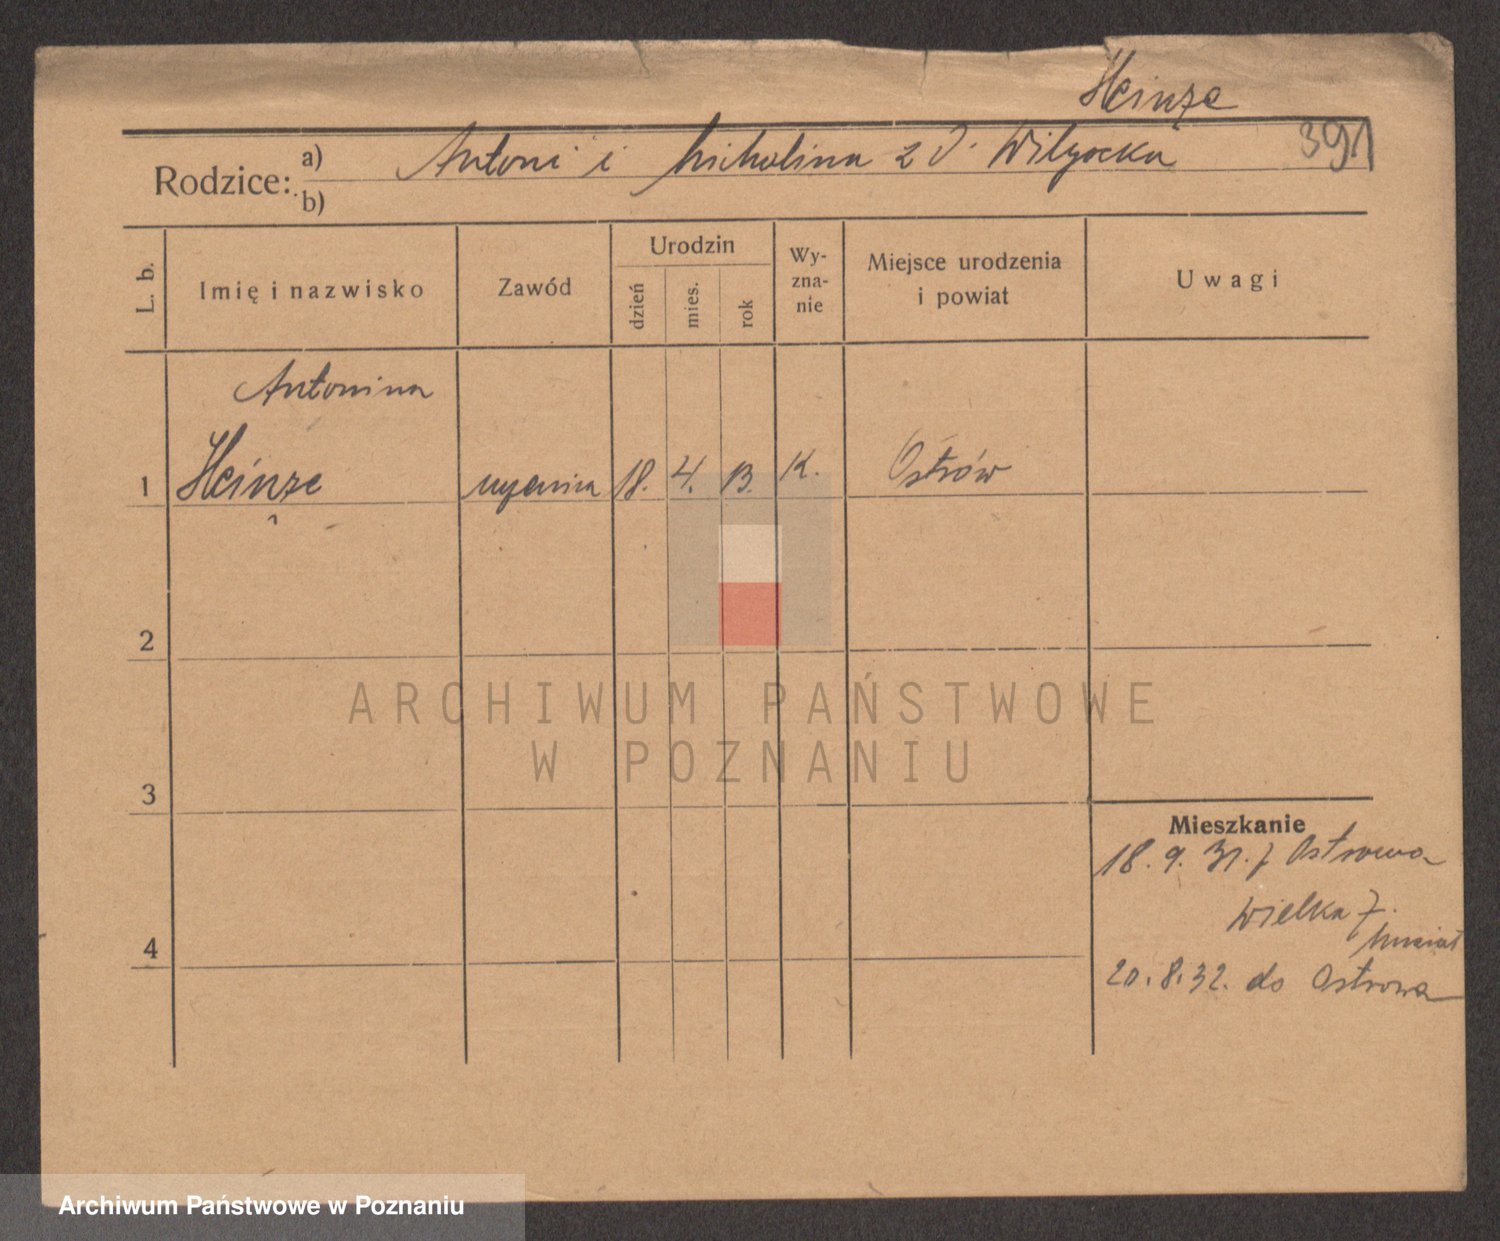 Heinze
391
Rodzice: a) Antoni i Michalina z d. Wilgocka
b)
L. b.
Imię i nazwisko
Zawód
Urodzin
dzień
mies.
rok
Wy-
zna-
nie
Miejsce urodzenia
i powiat
Uwagi
Antonina
1 Heinze uczenica 18. 4. 13. K. Ostrów
2
3
4
ARCHIWUM PAŃSTWOWE
W POZNANIU
Mieszkanie
18. 9. 31. z Ostrowa
Wielka 7.
20. 8. 32. do Ostrowa
Archiwum Państwowe w Poznaniu